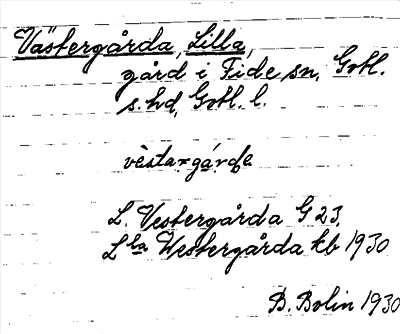 Västergårda, Lilla,
gård i Fide sn, Gotl.
s. hd, Gotl. l.
vèstargárde
L. Vestergårda G 23.
Lla Westergårda kb 1930
B. Bolin 1930